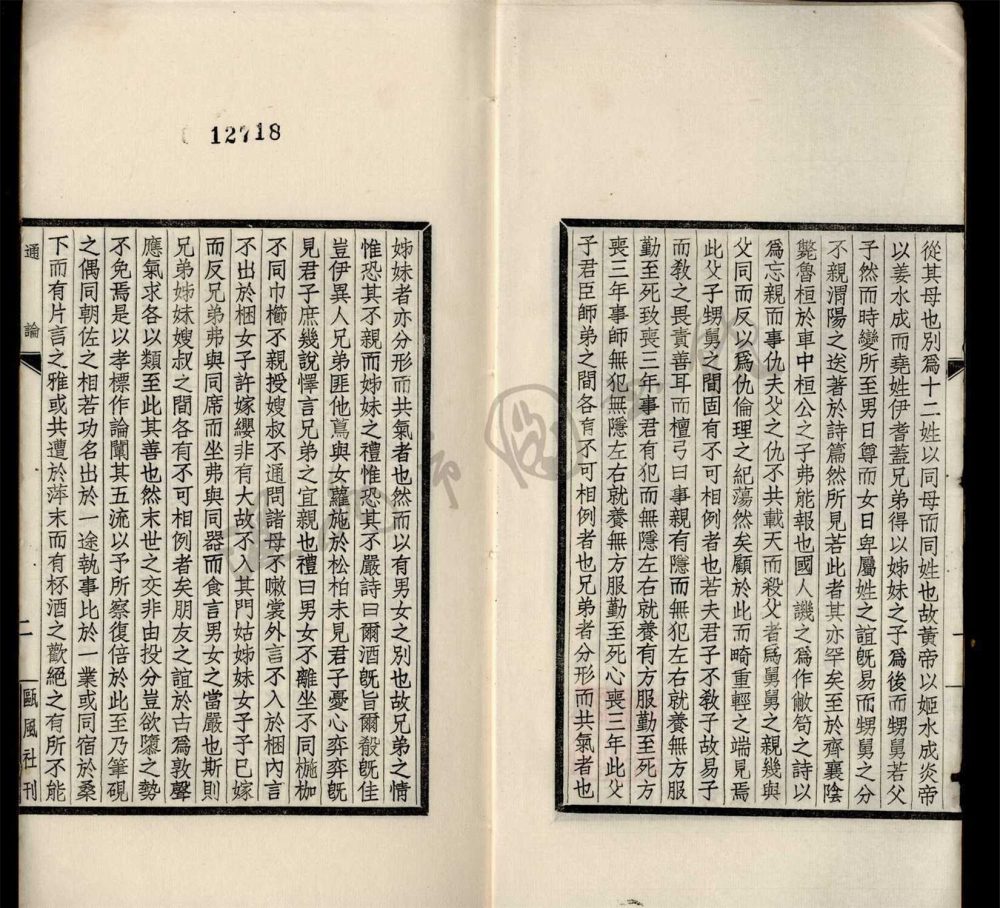 從其母也別爲十二姓以同母而同姓也故黃帝以姬水成炎帝
以姜水成而堯姓伊耆蓋兄弟得以姊妹之子爲後而甥舅若父
子然而時變所至男日尊而女日卑屬姓之誼旣易而甥舅之分
不親渭陽之送著於詩篇然所見若此者其亦罕矣至於齊襄陰
斃魯桓於車中桓公之子弗能報也國人譏之爲作敝笱之詩以
爲忘親而事仇夫父之仇不共載天而殺父者爲舅舅之親幾與
父同而反以爲仇倫理之紀蕩然矣顧於此而畸重輕之端見焉
此父子甥舅之間固有不可相例者也若夫君子不敎子故易子
而敎之畏責善耳而檀弓曰事親有隱而無犯左右就養無方服
勤至死致喪三年事君有犯而無隱左右就養有方服勤至死方
喪三年事師無犯無隱左右就養無方服勤至死心喪三年此父
子君臣師弟之間各有不可相例者也兄弟者分形而共氣者也
姊妹者亦分形而共氣者也然而以有男女之別也故兄弟之情
惟恐其不親而姊妹之禮惟恐其不嚴詩曰爾酒旣旨爾殽旣佳
豈伊異人兄弟匪他蔦與女蘿施於松柏未見君子憂心弈弈旣
見君子庶幾說懌言兄弟之宜親也禮曰男女不離坐不同椸枷
不同巾櫛不親授嫂叔不通問諸母不嗽裳外言不入於梱內言
不出於梱女子許嫁纓非有大故不入其門姑姊妹女子子已嫁
而反兄弟弗與同席而坐弗與同器而食言男女之當嚴也斯則
兄弟姊妹嫂叔之間各有不可相例者矣朋友之誼於古爲敦聲
應氣求各以類至此其善也然末世之交非由投分豈欲隳之勢
不免焉是以孝標作論闡其五流以予所察復倍於此至乃筆硯
之偶同朝佐之相若功名出於一途執事比於一業或同宿於桑
下而有片言之雅或共遭於萍末而有杯酒之歡絕之有所不能
通論
二
甌風社刊
12718